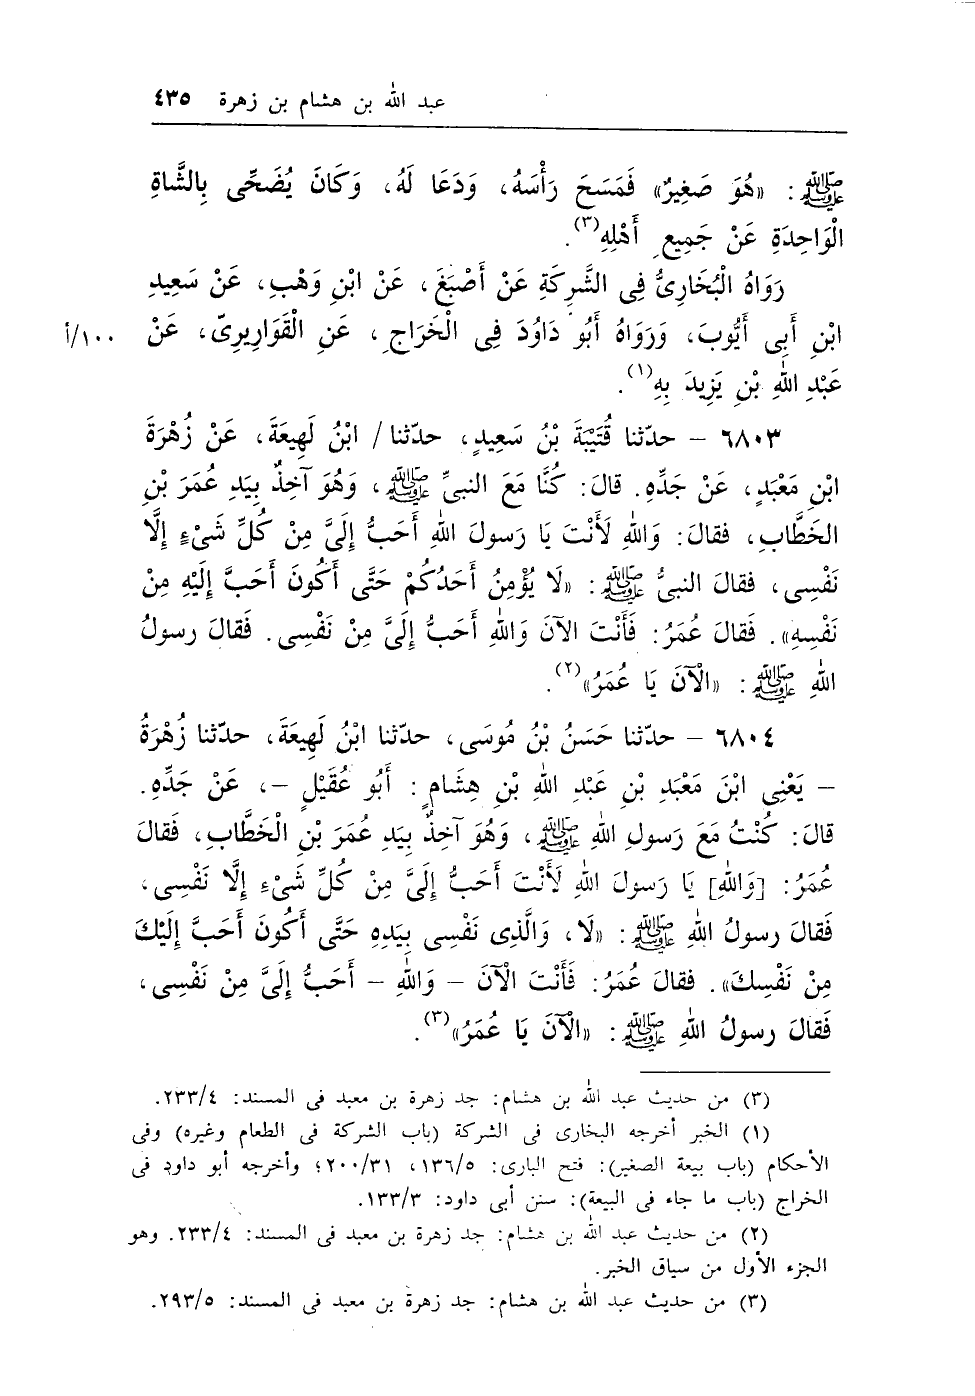 عبد الله بن هشام بن زهرة ٤٣٥
ﷺ: «هُوَ صَغِيرٌ» فَمَسَحَ رَأْسَهُ، وَدَعَا لَهُ، وَكَانَ يُضَحِّى بِالشَّاةِ
الْوَاحِدَةِ عَنْ جَمِيعِ أَهْلِهِ(٣).
رَوَاهُ الْبُخَارِىُّ فِى الشَّرِكَةِ عَنْ أَصْبَغَ، عَنْ ابْنِ وَهْبٍ، عَنْ سَعِيدِ
ابْنِ أَبِى أَيُّوبَ، وَرَوَاهُ أَبُو دَاوُدَ فِى الْخَرَاجِ، عَنِ الْقَوَارِيرِىّ، عَنْ ١٠٠/أ
عَبْدِ اللهِ بْنِ يَزِيدَ بِهِ(١).
٦٨٠٣ – حدّثنا قُتَيْبَةَ بْنُ سَعِيدٍ، حدّثنا / ابْنُ لَهِيعَةَ، عَنْ زُهْرَةَ
ابْنِ مَعْبَدٍ، عَنْ جَدِّهِ. قالَ: كُنَّا مَعَ النبىِّ ﷺ، وَهُوَ آخِذٌ بِيَدِ عُمَرَ بْنِ
الخَطَّابِ، فقالَ: وَاللهِ لَأَنْتَ يَا رَسولَ اللهِ أَحَبُّ إِلَىَّ مِنْ كُلِّ شَىْءٍ إِلَّا
نَفْسِى، فقالَ النبىُّ ﷺ: «لَا يُؤْمِنُ أَحَدُكُمْ حَتَّى أَكُونَ أَحَبَّ إِلَيْهِ مِنْ
نَفْسِهِ». فَقالَ عُمَرُ: فَأَنْتَ الآنَ وَاللهِ أَحَبُّ إِلَىَّ مِنْ نَفْسِى. فَقالَ رسولُ
اللهِ ﷺ: «الْآنَ يَا عُمَرُ»(٢).
٦٨٠٤ – حدّثنا حَسَنُ بْنُ مُوسَى، حدّثنا ابْنُ لَهِيعَةَ، حدّثنا زُهْرَةُ
– يَعْنِى ابْنَ مَعْبَدِ بْنِ عَبْدِ اللهِ بْنِ هِشَامٍ: أَبُو عُقَيْلٍ –، عَنْ جَدِّهِ.
قالَ: كُنْتُ مَعَ رَسولِ اللهِ ﷺ، وَهُوَ آخِذٌ بِيَدِ عُمَرَ بْنِ الْخَطَّابِ، فَقالَ
عُمَرُ: [وَاللهِ] يَا رَسولَ اللهِ لَأَنْتَ أَحَبُّ إِلَىَّ مِنْ كُلِّ شَىْءٍ إِلَّا نَفْسِى،
فَقالَ رسولُ اللهِ ﷺ: «لَا، وَالَّذِى نَفْسِى بِيَدِهِ حَتَّى أَكُونَ أَحَبَّ إِلَيْكَ
مِنْ نَفْسِكَ». فقالَ عُمَرُ: فَأَنْتَ الْآنَ – وَاللهِ – أَحَبُّ إِلَىَّ مِنْ نَفْسِى،
فَقالَ رسولُ اللهِ ﷺ: «الْآنَ يَا عُمَرُ»(٣).
(٣) من حديث عبد الله بن هشام: جد زهرة بن معبد فى المسند: ٢٣٣/٤.
(١) الخبر أخرجه البخارى فى الشركة (باب الشركة فى الطعام وغيره) وفى
الأحكام (باب بيعة الصغير): فتح البارى: ١٣٦/٥، ٢٠٠/٣١؛ وأخرجه أبو داود فى
الخراج (باب ما جاء فى البيعة): سنن أبى داود: ١٣٣/٣.
(٢) من حديث عبد الله بن هشام: جد زهرة بن معبد فى المسند: ٢٣٣/٤. وهو
الجزء الأول من سياق الخبر.
(٣) من حديث عبد الله بن هشام: جد زهرة بن معبد فى المسند: ٢٩٣/٥.